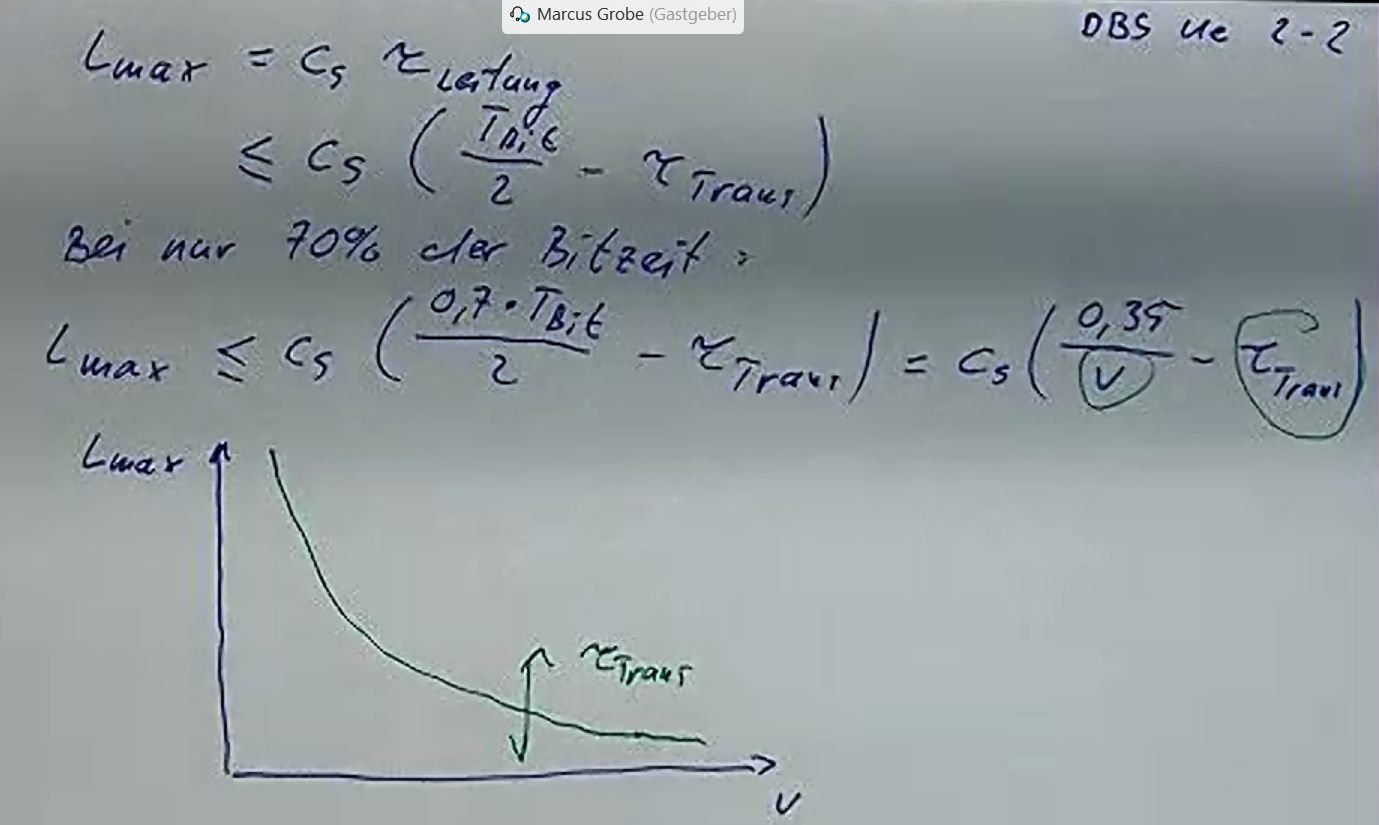 Marcus Grobe (Gastgeber)
DBS Ue 2-2
Lmax = cs τLeitung
≤ cs (TBit/2 - τTrans)
Bei nur 70% der Bitzeit:
Lmax ≤ cs (0,7·TBit/2 - τTrans) = cs (0,35/v - τTrans)
Lmax
τTrans
v